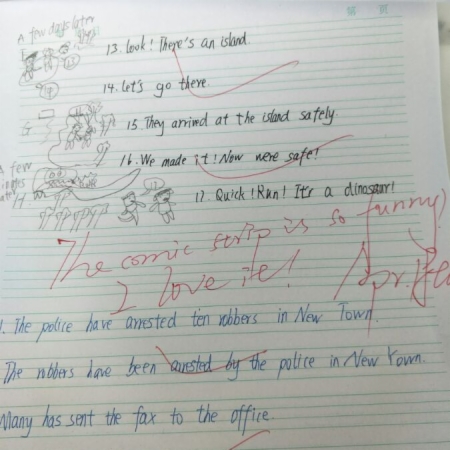 A few days later
13. Look! There's an island.
14. Let's go there.
15. They arrived at the island safely.
16. We made it! Now were safe!
A few
17. Quick! Run! It's a dinosaur!
The comic strip is so funny!
I love it!
1. The police have arrested ten robbers in New Town.
The robbers have been arrested by the police in New Town.
Many has sent the fax to the office.